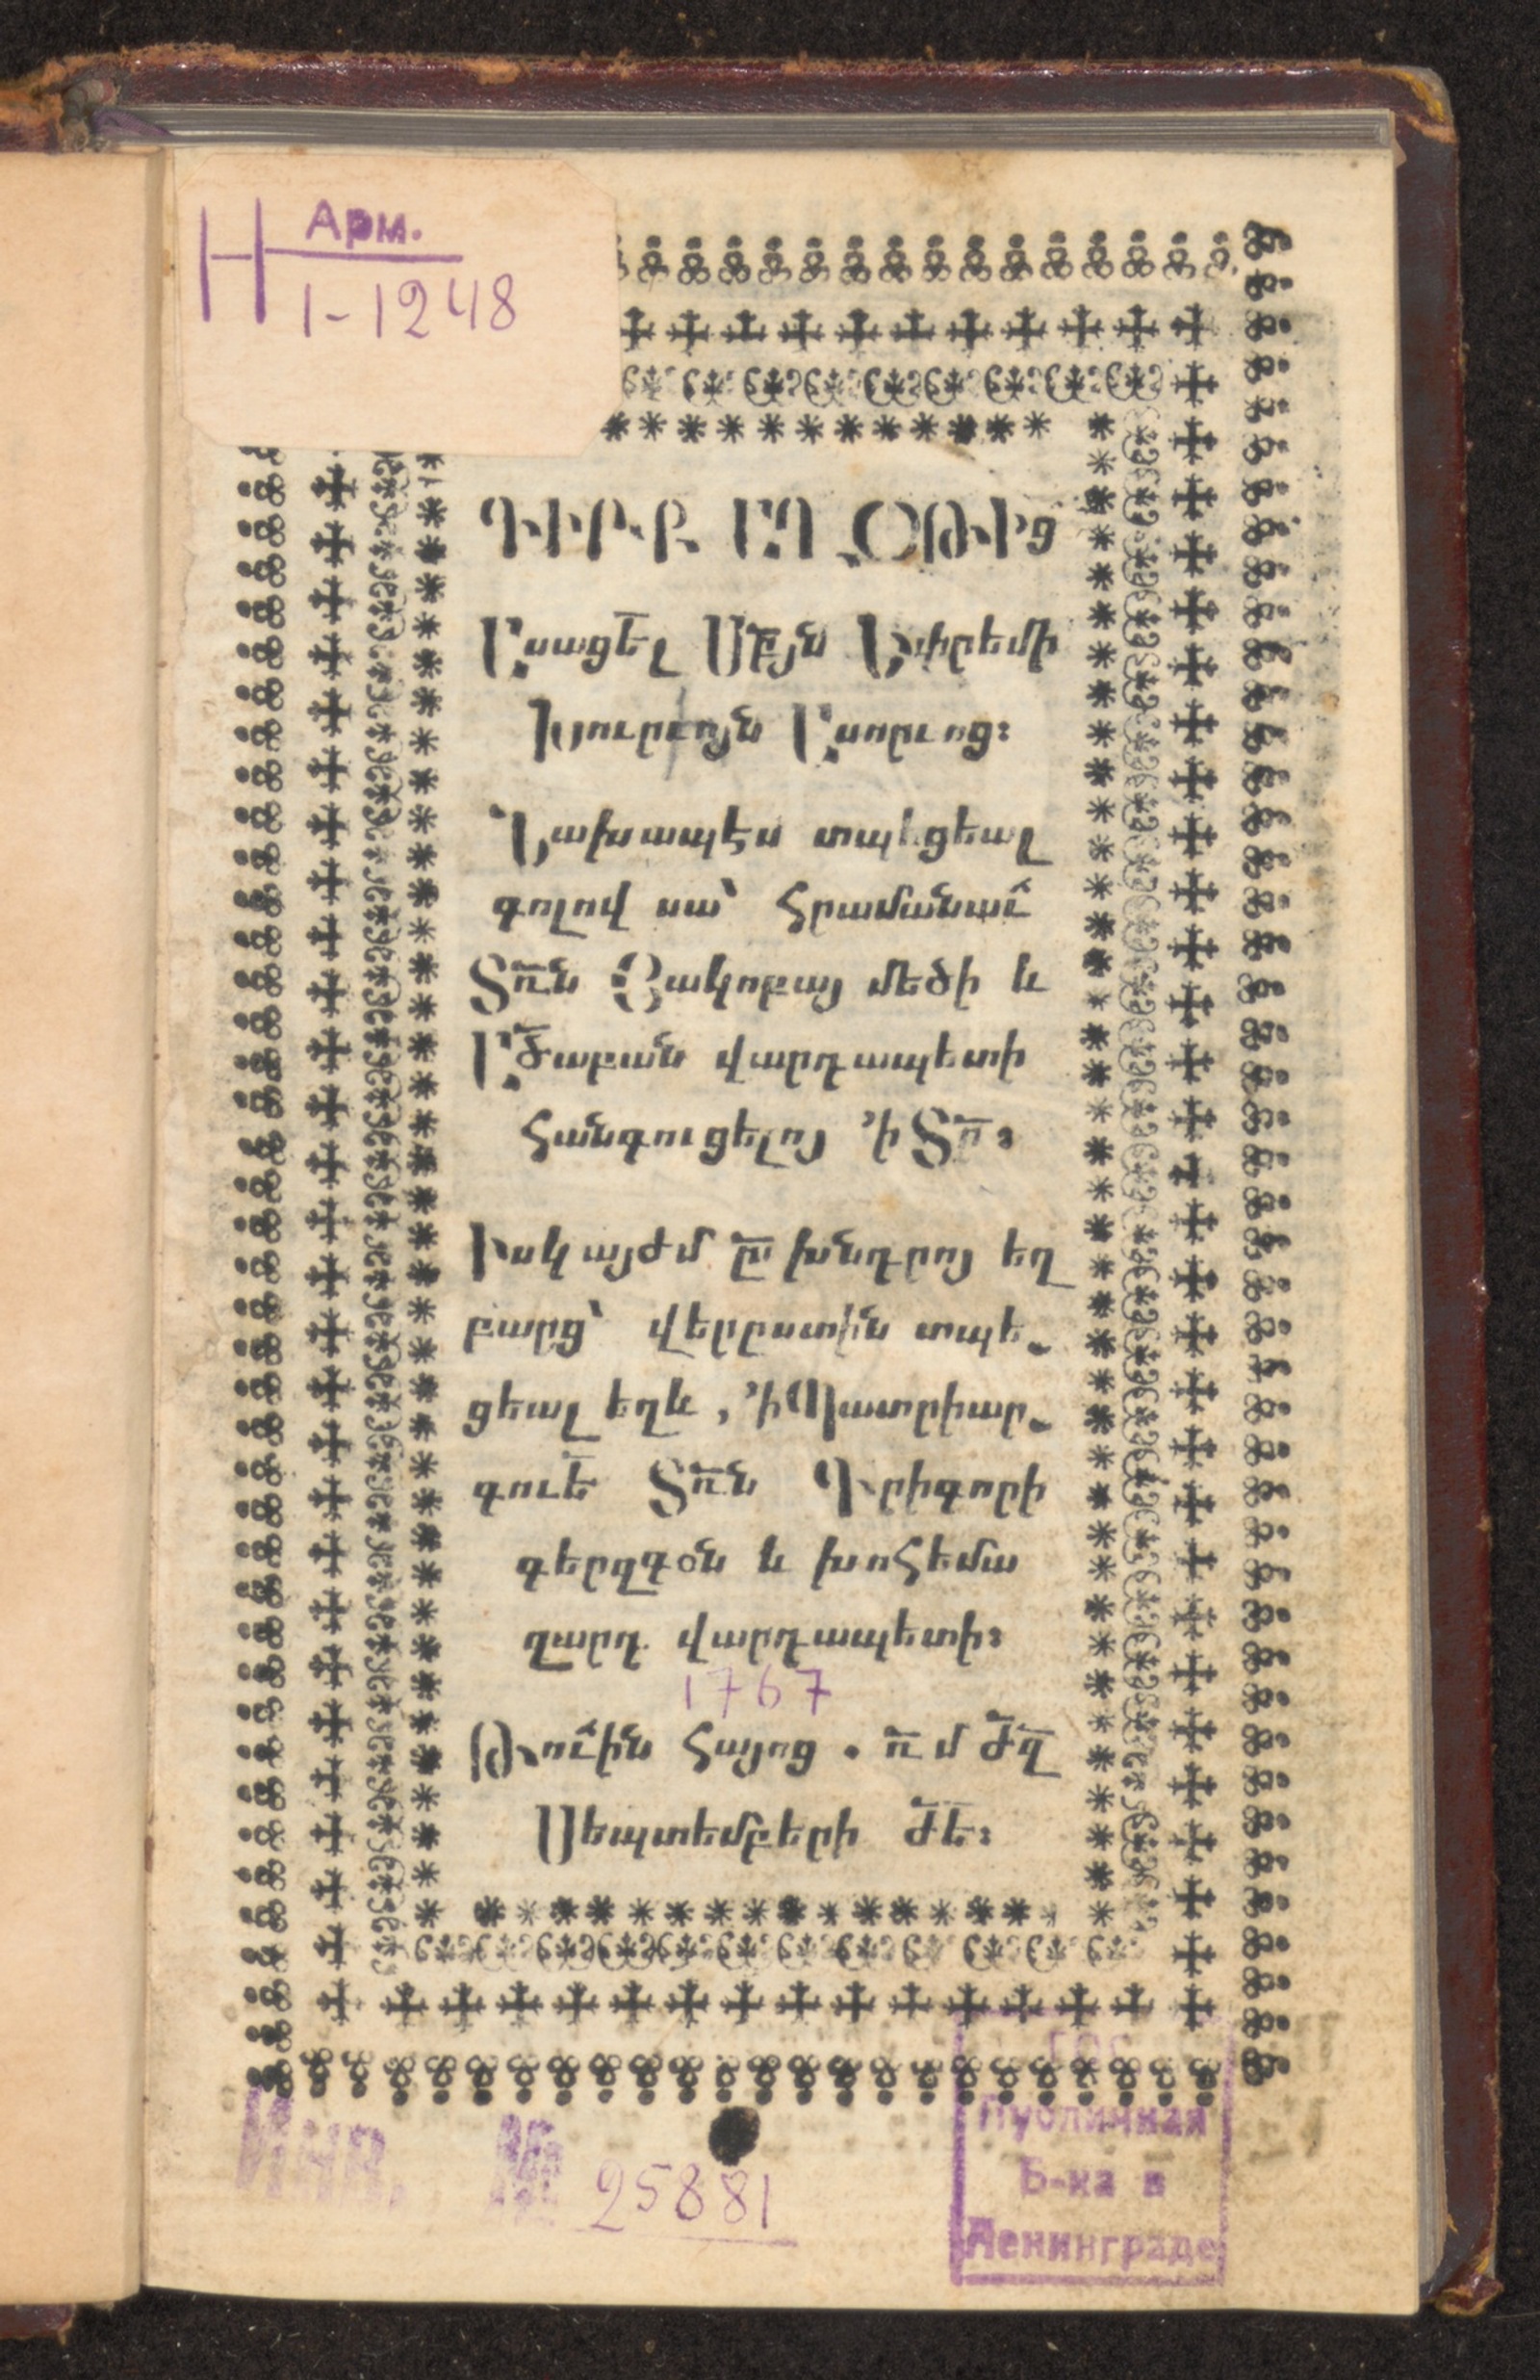 Н Арм.
1-1248
ԳԻՐՔ ԱՂՕԹԻՑ
Ասացեալ Սրբոյն Եփրեմի
Խուրւոյն Ասորւոց։
Նախապէս տպեցեալ
գոլով սա՝ հրամանաւ̃
Տն̃ Յակոբայ մեծի և
Ած̃աբան վարդապետի
հանգուցելոյ ՚ի Տր̃։
Իսկ այժմ ըստ խնդրոյ եղ
բարց՝ վերըստին տպե֊
ցեալ եղև, ՚ի Պատրիար֊
գուե̃ Տն̃ Գրիգորի
գերզգօն և խոհեմա
զարդ վարդապետի։
1767
Թուին̃ հայոց . ռ̃մժ̃զ̃
Սեպտեմբերի ժ̃ե̃։
Инв. № 25881
Публичная
Б-ка в
Ленинграде